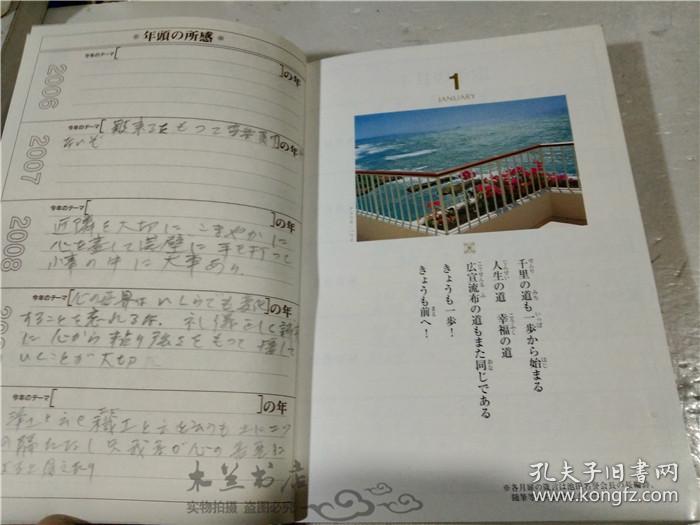 年頭の所感
今年のテーマ[
]の年
2006
今年のテーマ[
]の年
2007
今年のテーマ[
]の年
近隣を大切に こまやかに
心を
手を打って
小事の中に大事あり。
2008
今年のテーマ[
]の年
することを忘れるな。礼儀正しく
に心から
をもって接して
いくことが大切
今年のテーマ[
]の年
浄土と云ひ穢土と云うも土に二つ
の隔たなし只我等が心の善悪に
よると見えたり
1
JANUARY
千里の道も一歩から始まる
人生の道 幸福の道
広宣流布の道もまた同じである
きょうも一歩!
きょうも前へ!
※各月扉の箴言は池田名誉会長の長編詩、
随筆等
木兰书店
实物拍摄 盗图必究
孔夫子旧书网
www.kongfz.com